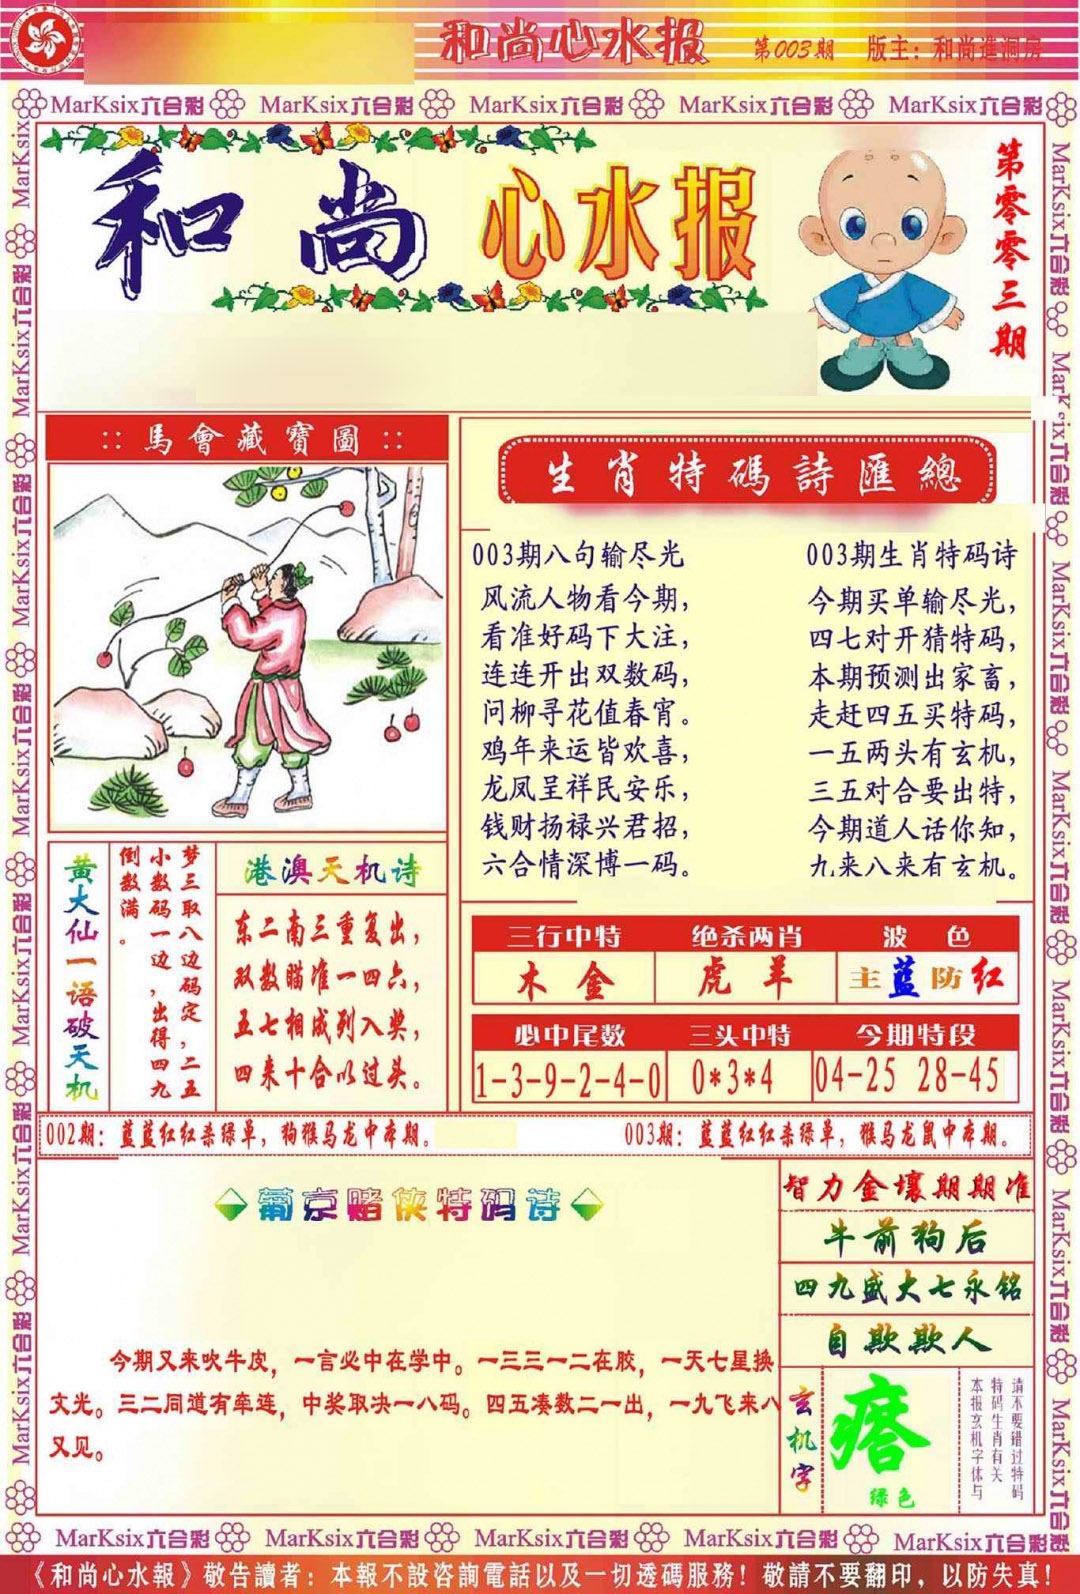 和尚心水报 第003期 版主：和尚進洞房
MarKsix六合彩 MarKsix六合彩 MarKsix六合彩 MarKsix六合彩 MarKsix六合彩
和尚 心水报
第零零三期
:: 馬會藏寶圖 ::
生肖特碼詩匯總
003期八句输尽光
风流人物看今期，
看准好码下大注，
连连开出双数码，
问柳寻花值春宵。
鸡年来运皆欢喜，
龙凤呈祥民安乐，
钱财扬禄兴君招，
六合情深博一码。
003期生肖特码诗
今期买单输尽光，
四七对开猜特码，
本期预测出家畜，
走赶四五买特码，
一五两头有玄机，
三五对合要出特，
今期道人话你知，
九来八来有玄机。
黄大仙一语破天机
梦三取八边码定，二五
小数码一边，出得四九
倒数满。
港澳天机诗
东二南三重复出，
双数瞄准一四六，
五七相成列入奖，
四来十合以过头。
三行中特 绝杀两肖 波色
木金 虎羊 主蓝防红
必中尾数 三头中特 今期特段
1-3-9-2-4-0 0*3*4 04-25 28-45
002期：蓝蓝红红杀绿单，狗猴马龙中本期。
003期：蓝蓝红红杀绿单，猴马龙鼠中本期。
葡京赌侠特码诗
今期又来吹牛皮，一言必中在学中。一三三一二在胶，一天七星换
文光。三二同道有牵连，中奖取决一八码。四五凑数二一出，一九飞来八
又见。
智力金壤期期准
牛前狗后
四九盛大七永铭
自欺欺人
玄机字
瘩
绿色
请不要错过特码
特码生肖有关
本报玄机字体与
MarKsix六合彩 MarKsix六合彩 MarKsix六合彩 MarKsix六合彩 MarKsix六合彩
《和尚心水報》敬告讀者：本報不設咨詢電話以及一切透碼服務！敬請不要翻印，以防失真！